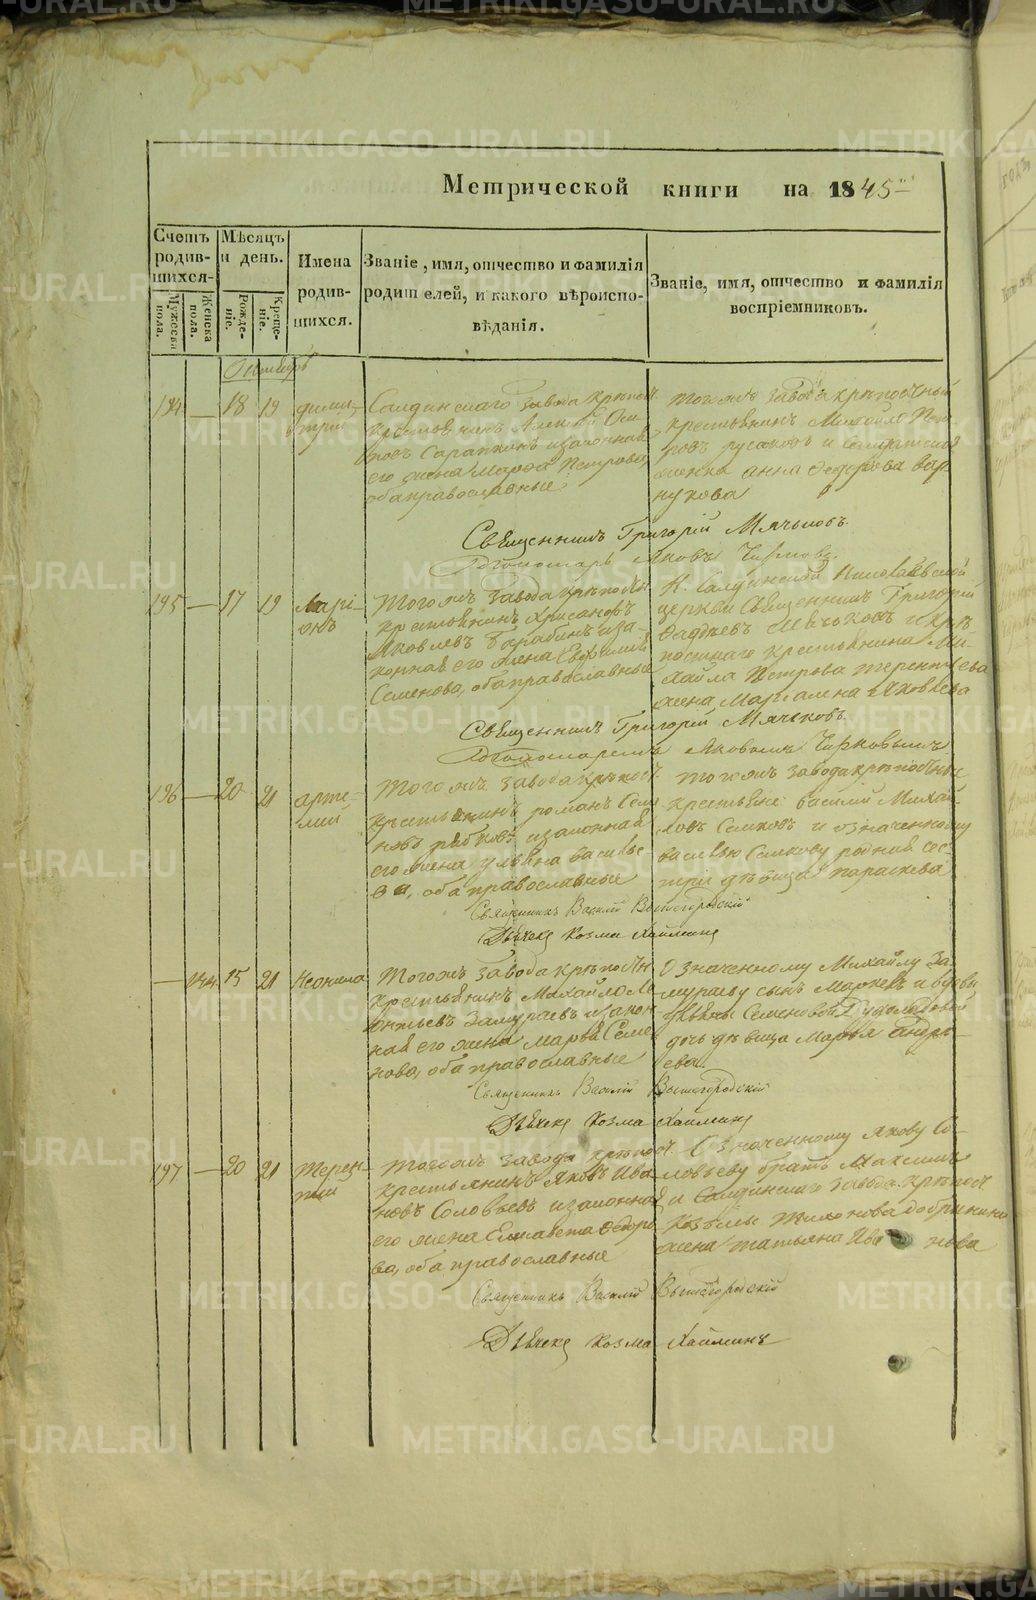 METRIKI.GASO-URAL.RU
Метрической книги на 1845
Счетъ родившихся
Мужеска пола.
Женска пола.
Мѣсяцъ и день.
Рожденіе.
Крещеніе.
Имена родившихся.
Званіе, имя, отчество и фамилія родителей, и какого вѣроисповѣданія.
Званіе, имя, отчество и фамилія воспріемниковъ.
Октябрь
194 — 18 19
Дими-
трій
Салдинскаго завода крѣпост.
крестьянинъ Алексѣй Оси-
повъ и законная
его жена Марѳа Петрова,
оба православные
Того жъ завода крѣпостный
крестьянинъ Михайло Пет-
ровъ Русаковъ и
женка Анна Ѳедорова Вар-
нукова
Священникъ Григорій Мячьковъ.
Пономарь Яковъ Чирковъ.
195 — 17 19
Ларі-
онъ
Того жъ завода крѣпостн
крестьянинъ Хрисанѳъ
Яковлевъ и за-
конная его жена Евфимія
Семенова, оба православные
Н. Салдинской Николаевской
церкви Священникъ Григорій
Ѳаддѣевъ Мячьковъ и крѣ
постнаго крестьянина Ми-
хайла Петрова Терентьева
жена Марiамна Яковлева
Священникъ Григорій Мячьковъ.
Пономаремъ Яковомъ Чирковымъ
196 — 20 21
Арте-
мій
Того жъ завода крѣпост.
крестьянинъ Романъ Семе
новъ Рябковъ и законная
его жена Ульяна Василье-
ва, оба православные
Того жъ завода крѣпостные
крестьяне Василій Михай-
ловъ Симковъ и означенному
Василью Симкову родная сес-
тра дѣвица Параскева
Священникъ Василій Вышегородскій
Дьячекъ Козма Хаймин
— 194 15 21
Неонила
Того жъ завода крѣпостн
крестьянинъ Михайло Ле
онтьевъ Замураевъ и закон
ная его жена Марѳа Семе
нова, оба православные
Означенному Михайлу За-
мураеву сынъ Маркелъ и вдовы
Семеновой
дочь дѣвица Марья Андре
ева.
Священникъ Василій Вышегородскій
Дьячекъ Козма Хаймин
197 — 20 21
Терен-
тій
Того жъ завода крѣпост.
крестьянинъ Яковъ Ива
новъ Соловьевъ и законная
его жена Елисавета Ѳедоро
ва, оба православные
Означенному Якову Со-
ловьеву братъ Максимъ
и Салдинскаго завода крѣпост
Козьмы Тихонова Добрынина
жена Татьяна Ива нова
Священникъ Василій Вышегородскій
Дьячекъ Козма Хайминъ